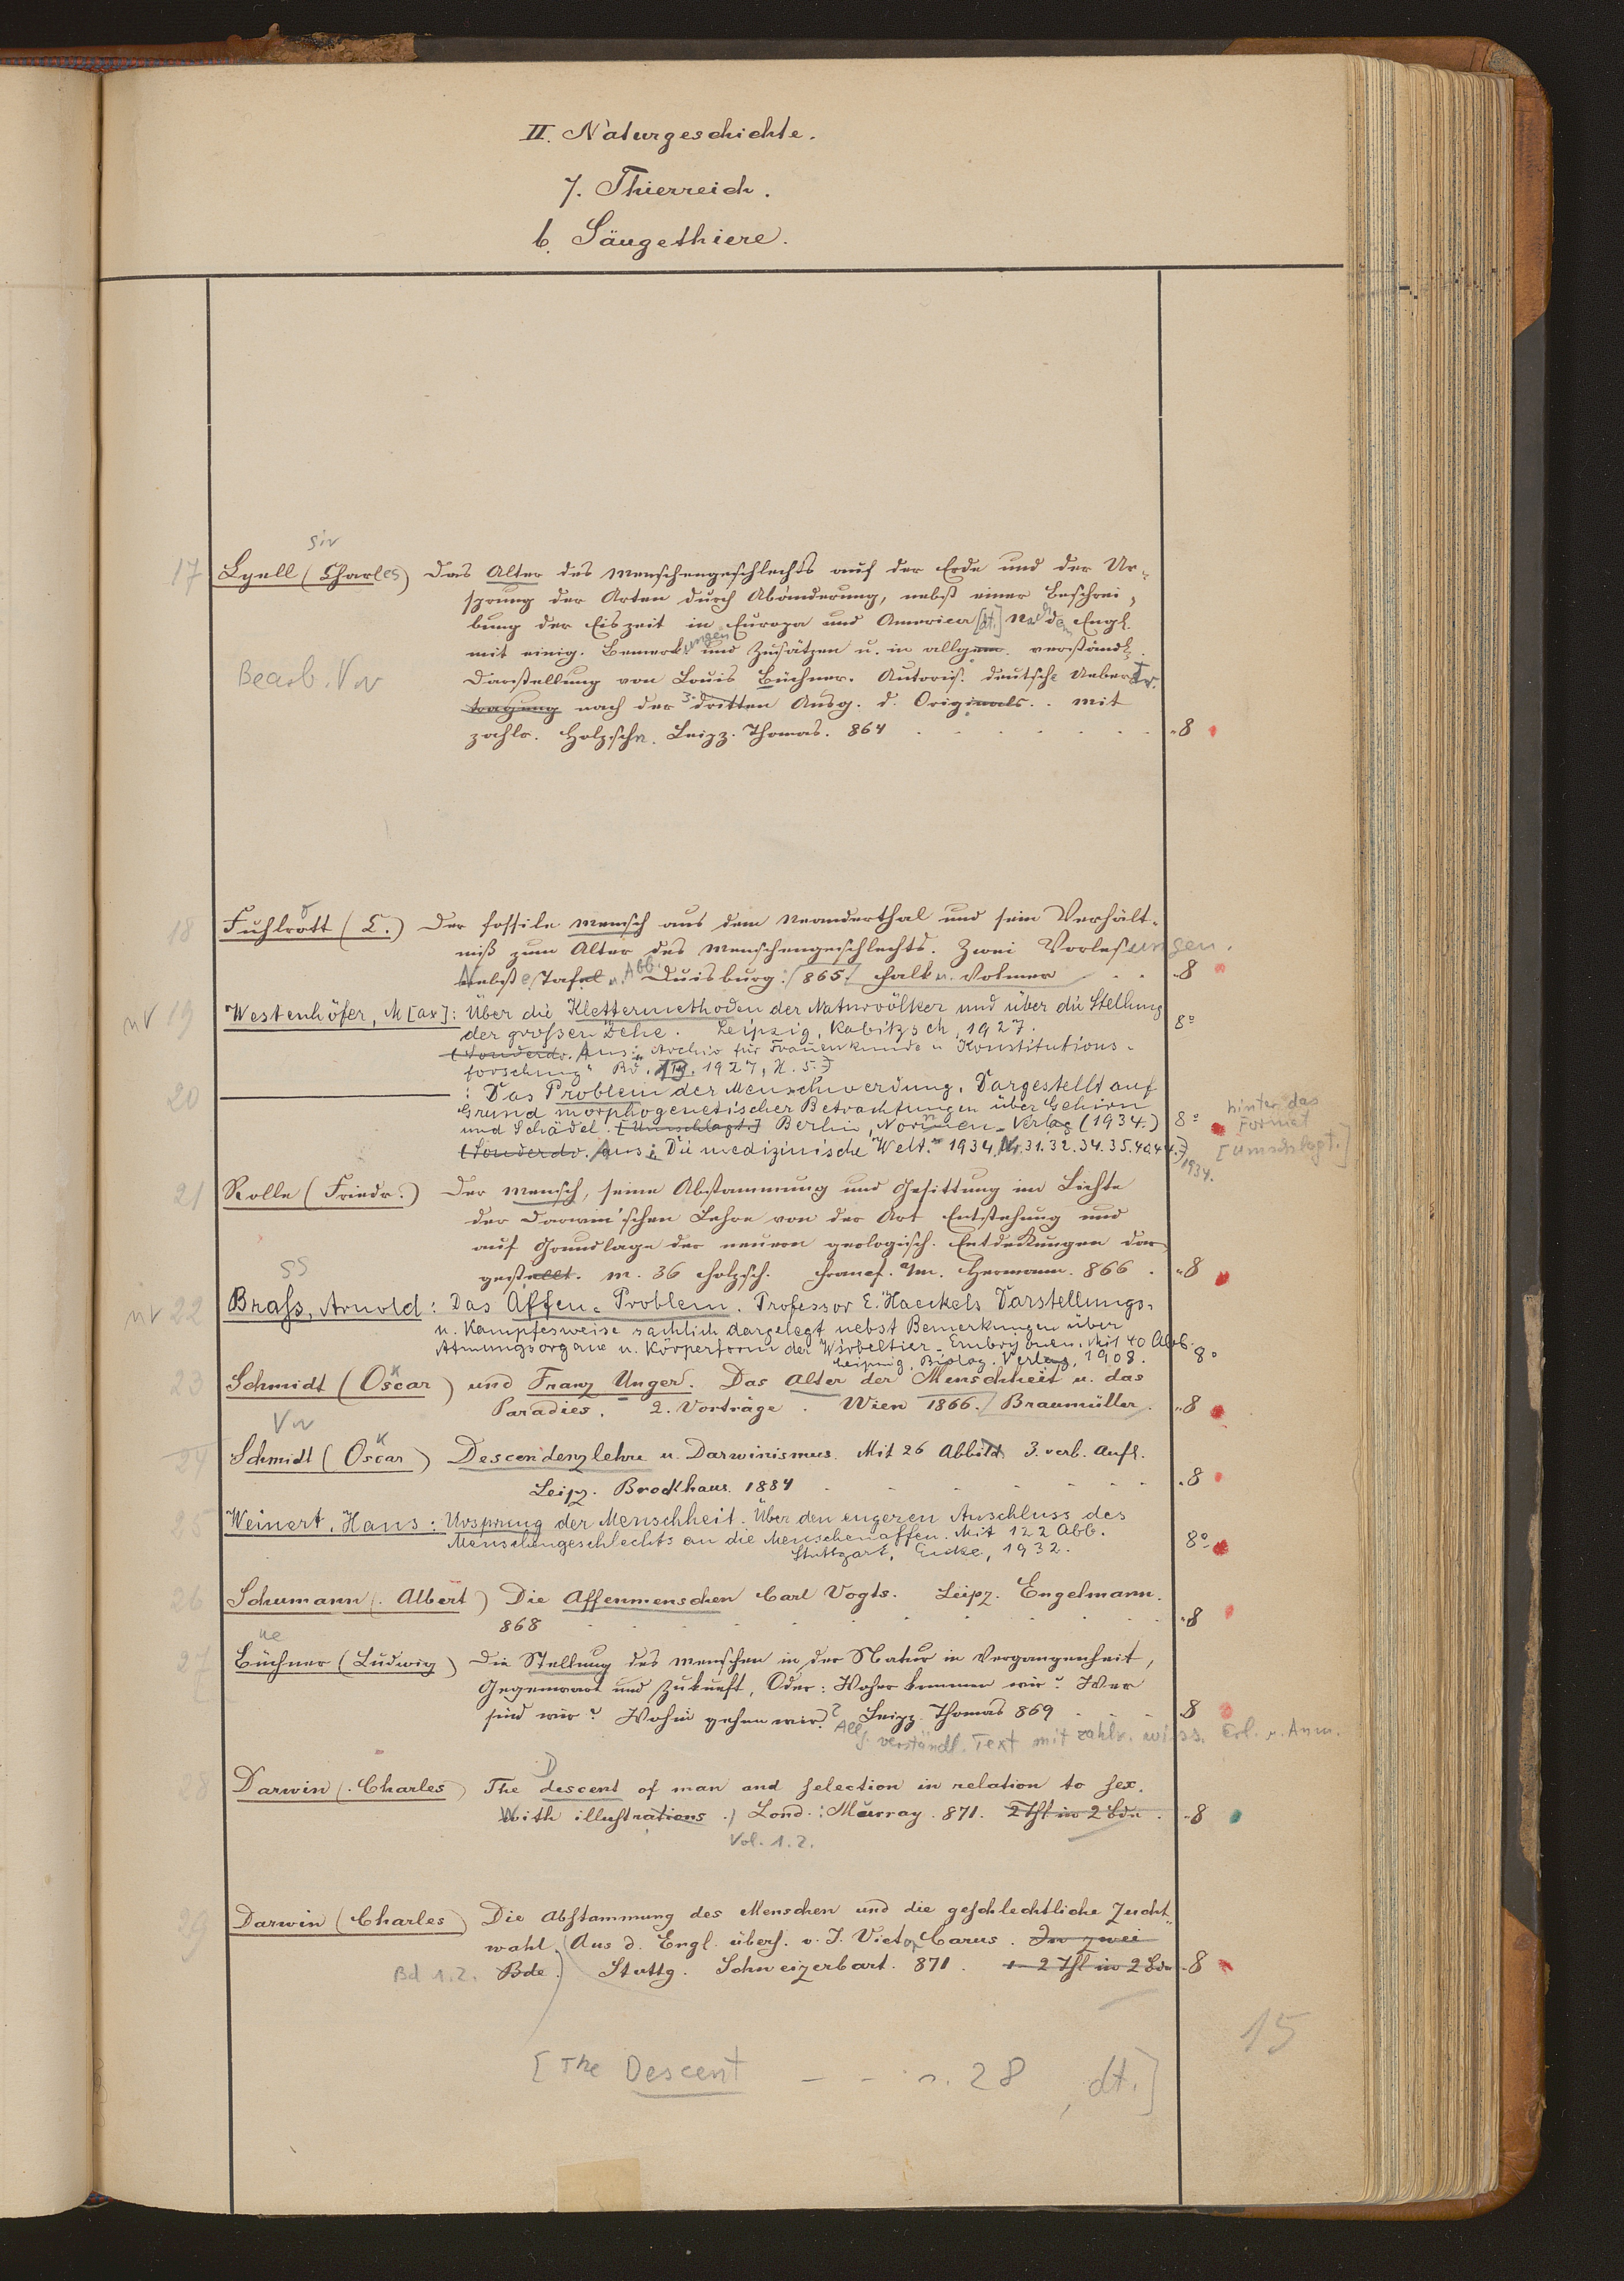 II. Naturgeschichte.
7. Thierreich.
b. Säugethiere.
Sir
17 Lyell (Charles) Das Alter des Menschengeschlechts auf der Erde und der Ur-
sprung der Arten durch Abänderung, nebst einer Beschrei-
bung der Eiszeit in Europa und America [dt.] Nach dem Engl.
mit einig. Bemerkungen und Zusätzen u. in allgem. verständl.
Bearb. Vw Darstellung von Louis Büchner. Autoris. deutsche Uebertr.
tragung nach der 3. dritten Ausg. d. Originals. . mit
zahlr. Holzschn. Leipz. Thomas. 864 8
18 Fuhlrott (C.) Der fossile Mensch aus dem Neanderthal und sein Verhält-
niß zum Alter des Menschengeschlechts. Zwei Vorlesungen.
Nebst Tafel u. Abb. Duisburg. 865. Falk u. Volmer 8
nv 19 Westenhöfer, M[ax]: Über die Klettermethoden der Naturvölker und über die Stellung
der großen Zehe. Leipzig, Kabitzsch, 1927. 8°
(Sonderdr. Aus: Archiv für Frauenkunde u Konstitutions-
forschung" Bd. 13. 1927, H. 5.)
20 : Das Problem der Menschwerdung. Dargestellt auf
Grund morphogenetischer Betrachtungen über Gehirn
und Schädel. [Umschlagt.] Berlin, Nornen-Verlag (1934.) 8° hinter das Format
(Sonderdr. Aus: Die medizinische Welt. 1934, Nr. 31. 32. 34. 35. 40. 44.) 1934. [Umschlagt.]
21 Rolle (Friedr.) Der Mensch, seine Abstammung und Gesittung im Lichte
der Darwin'schen Lehre von der Art Entstehung und
auf Grundlage der neuern geologisch. Entdeckungen dar-
gestellt. M. 36 Holzsch. Francf. a/m. Hermann. 866. 8
ss
nv 22 Braß, Arnold: Das Affen-Problem. Professor E. Haeckels Darstellungs-
u. Kampfesweise sachlich dargelegt nebst Bemerkungen über
Atmungsorgane u. Körperform der Wirbeltier-Embryonen. Mit 40 Abb.
Leipzig, Biolog. Verlag, 1908. 8°
23 Schmidt (Oscar) und Franz Unger. Das Alter der Menschheit u. das
Paradies. 2. Vorträge. Wien 1866. Braumüller. 8
Vw
24 Schmidt (Oscar) Descendenzlehre u. Darwinismus. Mit 26 Abbild. 3. verb. Aufl.
Leipz. Brockhaus. 1884 8
25 Weinert, Hans: Ursprung der Menschheit. Über den engeren Anschluss des
Menschengeschlechts an die Menschenaffen. Mit 122 Abb.
Stuttgart, Enke, 1932. 8°
26 Schumann (Albert) Die Affenmenschen Carl Vogts. Leipz. Engelmann.
868 8
ue
27 Büchner (Ludwig) Die Stellung des Menschen in der Natur in Vergangenheit,
Gegenwart und Zukunft, Oder: Woher kommen wir? Wer
sind wir? Wohin gehen wir? Leipz. Thomas 869 8
Allg. verständl. Text mit zahlr. wiss. Erl. u. Anm.
28 Darwin (Charles) The descent of man and selection in relation to sex.
With illustrations. Lond: Murray. 871. 2 Thl in 2 Bdn. 8
Vol. 1.2.
29 Darwin (Charles) Die Abstammung des Menschen und die geschlechtliche Zucht-
wahl. (Aus d. Engl. übers. v. J. Victor Carus. In zwei
Bd 1.2. Bde.) Stuttg. Schweizerbart. 871. 2 Thl in 2 Bdn 8
15
[The Descent - - s. 28, dt.]